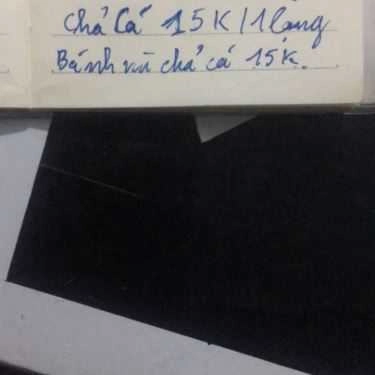 chả Cá 15K/1lạng
Bánh mì chả cá 15K.